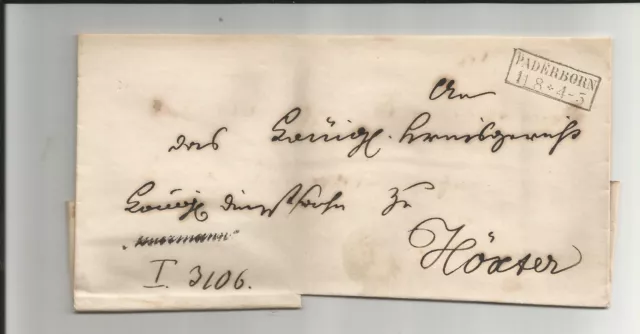 PADERBORN
11 8 * 4-5
An
das Königl. Kreisgericht
Königl Dienstsache zu
Höxter
I. 3106.